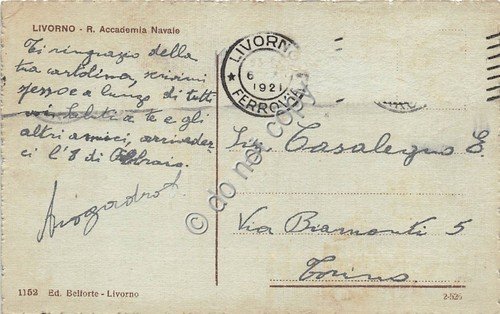 LIVORNO - R. Accademia Navale
Ti ringrazio della
tua cartolina, scrivimi
spesso e a lungo di tutti
voi. Saluti a te e gli
altri amici, arriveder-
ci l'8 di Febbraio.
Avogadro
LIVORNO
6
1921
FERROVIA
Sig. Casalegno E.
Via Bramanti 5
Torino
© do not copy
1152 Ed. Belforte - Livorno
2-526